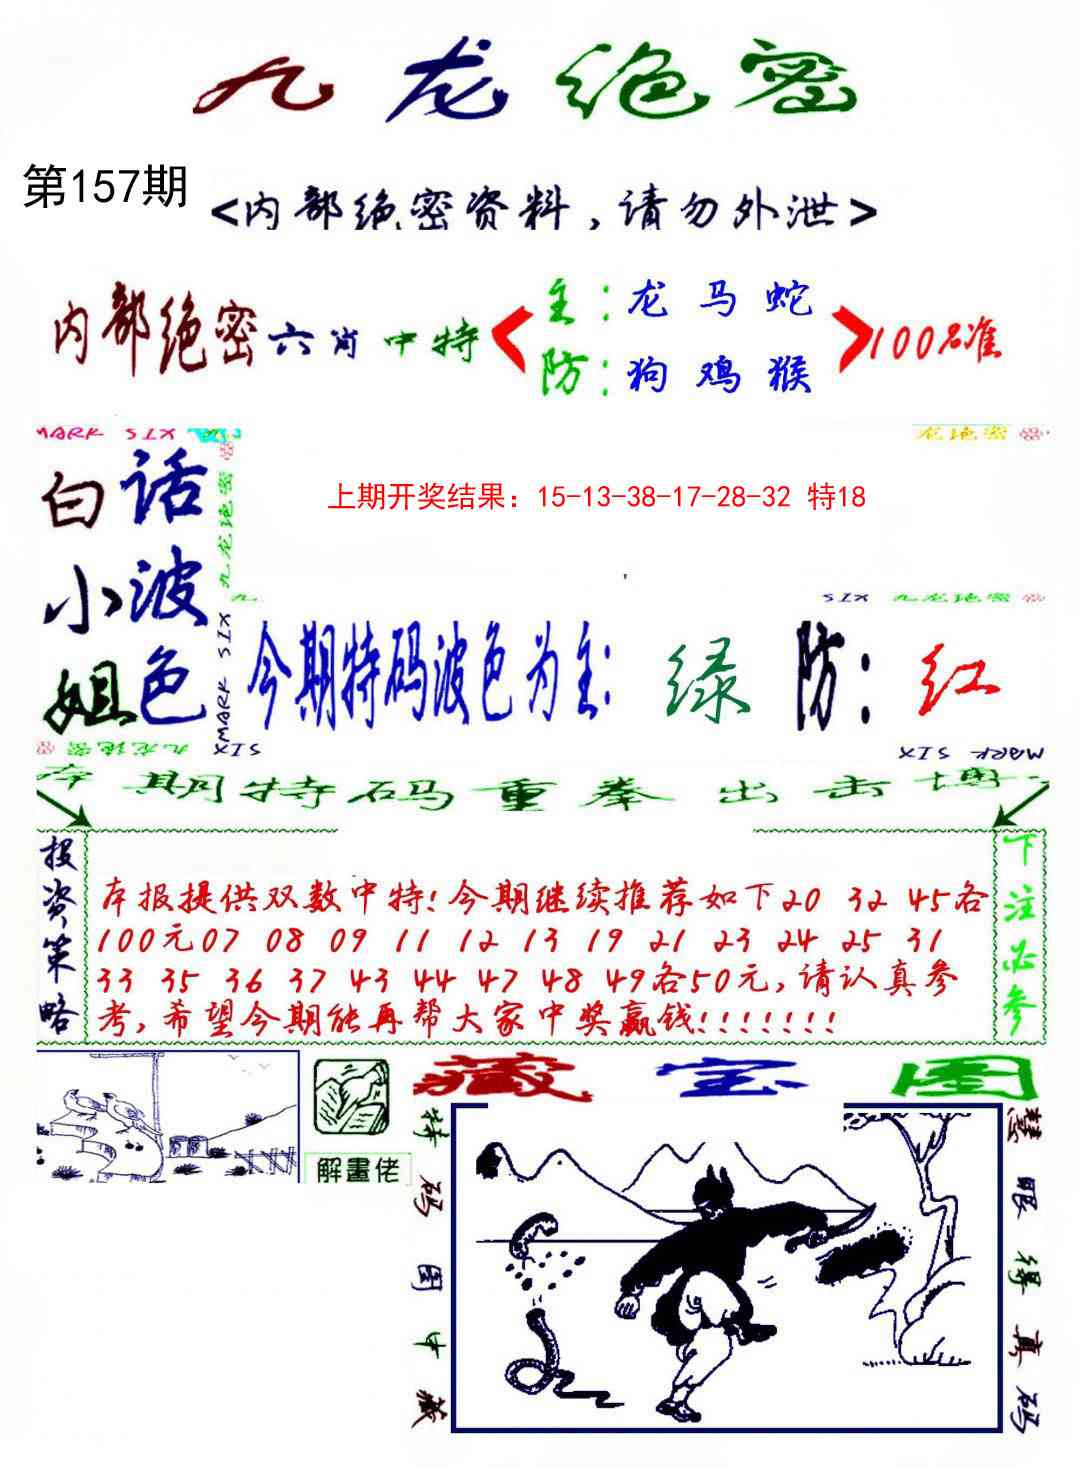 九龙绝密
第157期
<内部绝密资料,请勿外泄>
内部绝密六肖中特
主:龙 马 蛇
防:狗 鸡 猴
100%准
MARK SIX
九龙绝密
白话
小波
姐色
九龙绝密
MARK SIX
上期开奖结果：15-13-38-17-28-32 特18
SIX 九龙绝密
今期特码波色为主:绿 防:红
九龙绝密 SIX
MARK SIX
本期特码重拳出击博
投资策略
本报提供双数中特!今期继续推荐如下20 32 45各
100元07 08 09 11 12 13 19 21 23 24 25 31
33 35 36 37 43 44 47 48 49各50元,请认真参
考,希望今期能再帮大家中奖赢钱!!!!!!!
下注必参
解畫佬
藏宝图
特码图中藏
慧眼得真码